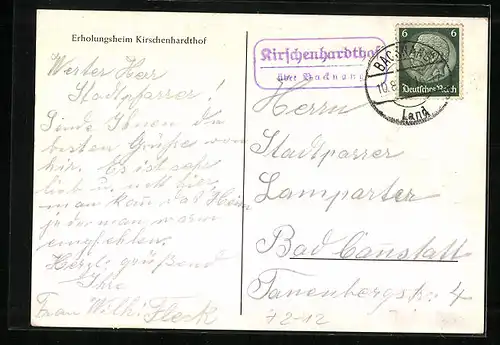 Erholungsheim Kirschenhardthof
Werter Herr
Stadtpfarrer!
Sende Ihnen die
besten Grüße von
hir. Es ist sehr
lieb u. nett hir,
man kann das Heim
jedermann warm
empfehlen.
Herzl. grüßend
Ihre
Frau Wilh. Fleck
Kirschenhardthof
über Backnang
BACKNANG
10.8.
Land
6 6
Deutsches Reich
Herrn
Stadtpfarrer
Lamparter
Bad Cannstatt
Tanenbergstr. 4
72-12